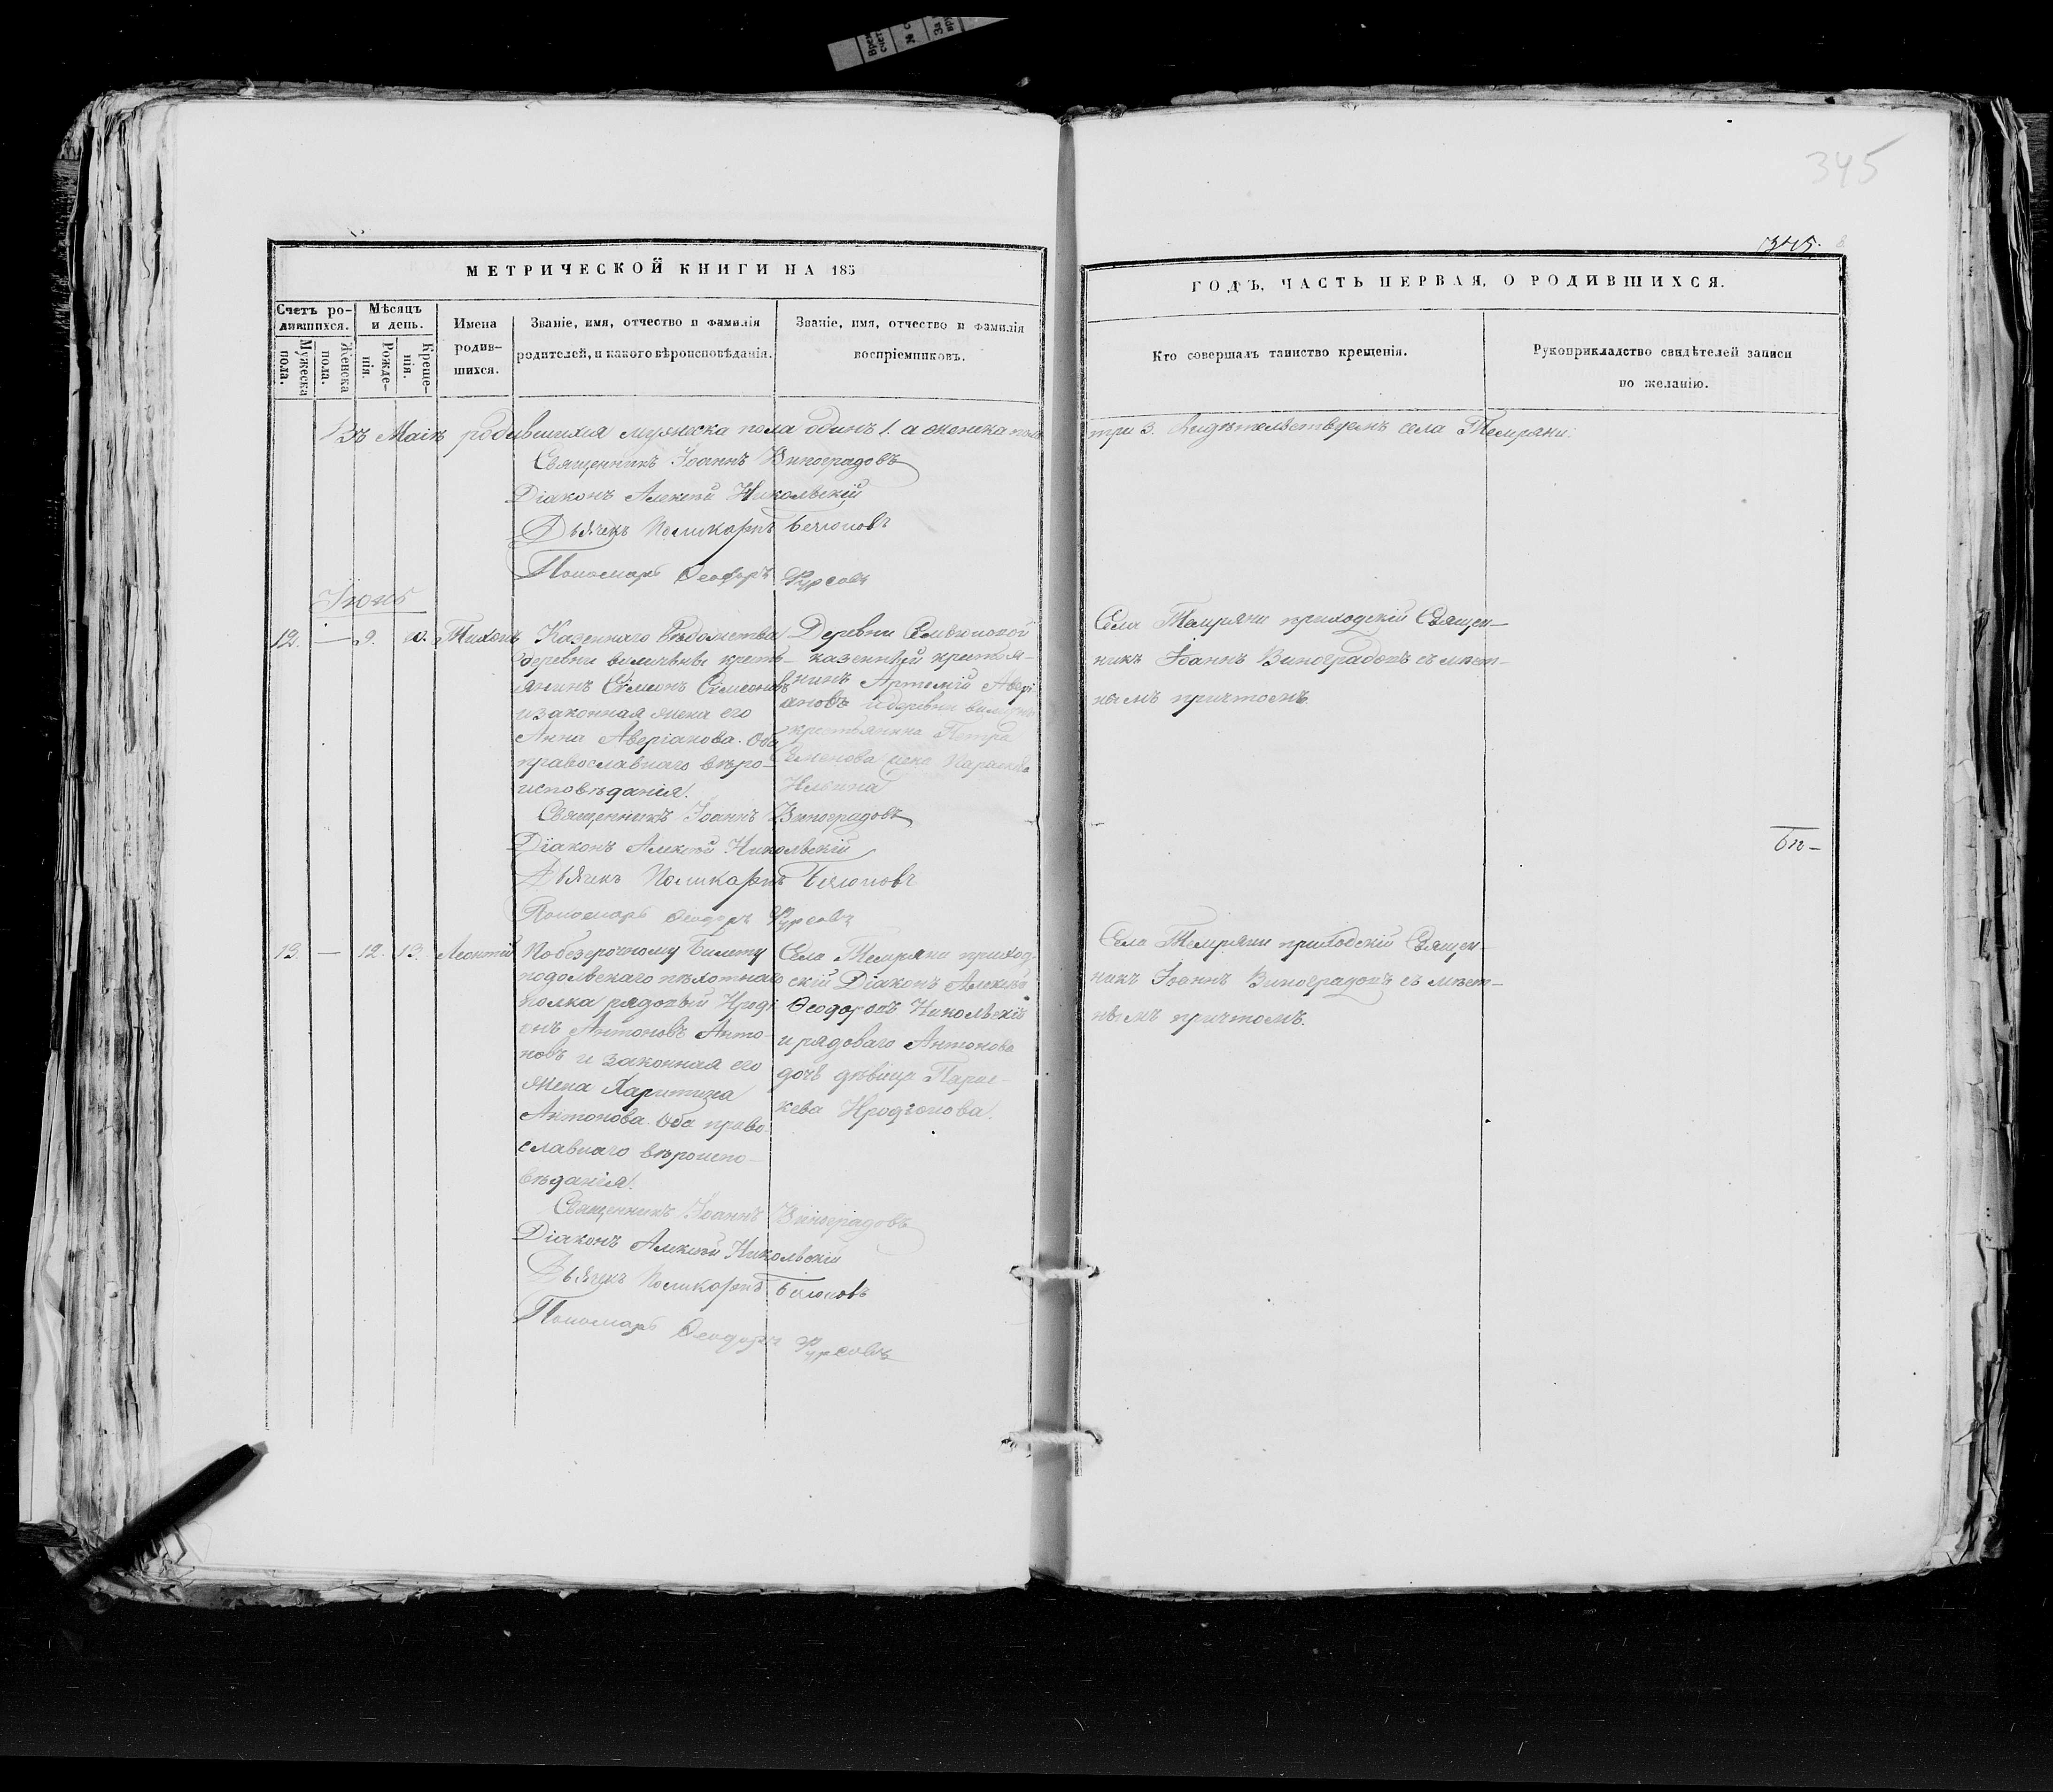 345
345.
МЕТРИЧЕСКОЙ КНИГИ НА 185
ГОДЪ, ЧАСТЬ ПЕРВАЯ, О РОДИВШИХСЯ.
Счетъ ро-
дившихся.
Мужеска
пола.
Женска
пола.
Мѣсяцъ
и день.
Рожде-
нія.
Креще-
нія.
Имена
родив-
шихся.
Званіе, имя, отчество и фамилія
родителей, и какого вѣроисповѣданія.
Званіе, имя, отчество и фамилія
воспріемниковъ.
Кто совершалъ таинство крещенія.
Рукоприкладство свидѣтелей записи
по желанію.
Въ Маіѣ родившихся мужеска пола одинъ 1. а женска пола
три 3. Свидѣтельствуемъ села Темряни:
Священникъ Іоаннъ Виноградовъ
Діаконъ Алексѣй Никольскій
Дьячекъ Поликарпъ
Пономарь Ѳеодоръ Фурсовъ
Іюнь
12. — 9. 10. Тихонъ
Казеннаго Вѣдомства
деревни кресть-
янинъ Симеонъ Симеоновъ
и законная жена его
Анна Аверіанова. Оба
православнаго вѣро-
исповѣданія.
Деревни
казенный крестья-
нинъ Артемій Авері-
ановъ и деревни
крестьянина Петра
Семенова жена Параскева
Ильина
Села Темряни приходскій Священ-
никъ Іоаннъ Виноградовъ съ мѣст-
нымъ причтомъ.
Священникъ Іоаннъ Виноградовъ
Діаконъ Алексѣй Никольскій
Дьячекъ Поликарпъ
Пономарь Ѳеодоръ Фурсовъ
13. — 12. 13. Леонтій
По безсрочному билету
подольскаго пѣхотнаго
полка рядовый Ироді-
онъ Антоновъ Анто-
новъ и законная его
жена Харитина
Антонова. Оба право-
славнаго вѣроиспо-
вѣданія.
Села Темряни приход-
скій Діаконъ Алексѣй
Ѳеодоровъ Никольскій
и рядоваго Антонова
дочь дѣвица Парас-
кева Иродіонова.
Села Темряни приходскій Священ-
никъ Іоаннъ Виноградовъ съ мѣст-
нымъ причтомъ.
Священникъ Іоаннъ Виноградовъ
Діаконъ Алексѣй Никольскій
Дьячекъ Поликарпъ
Пономарь Ѳеодоръ Фурсовъ